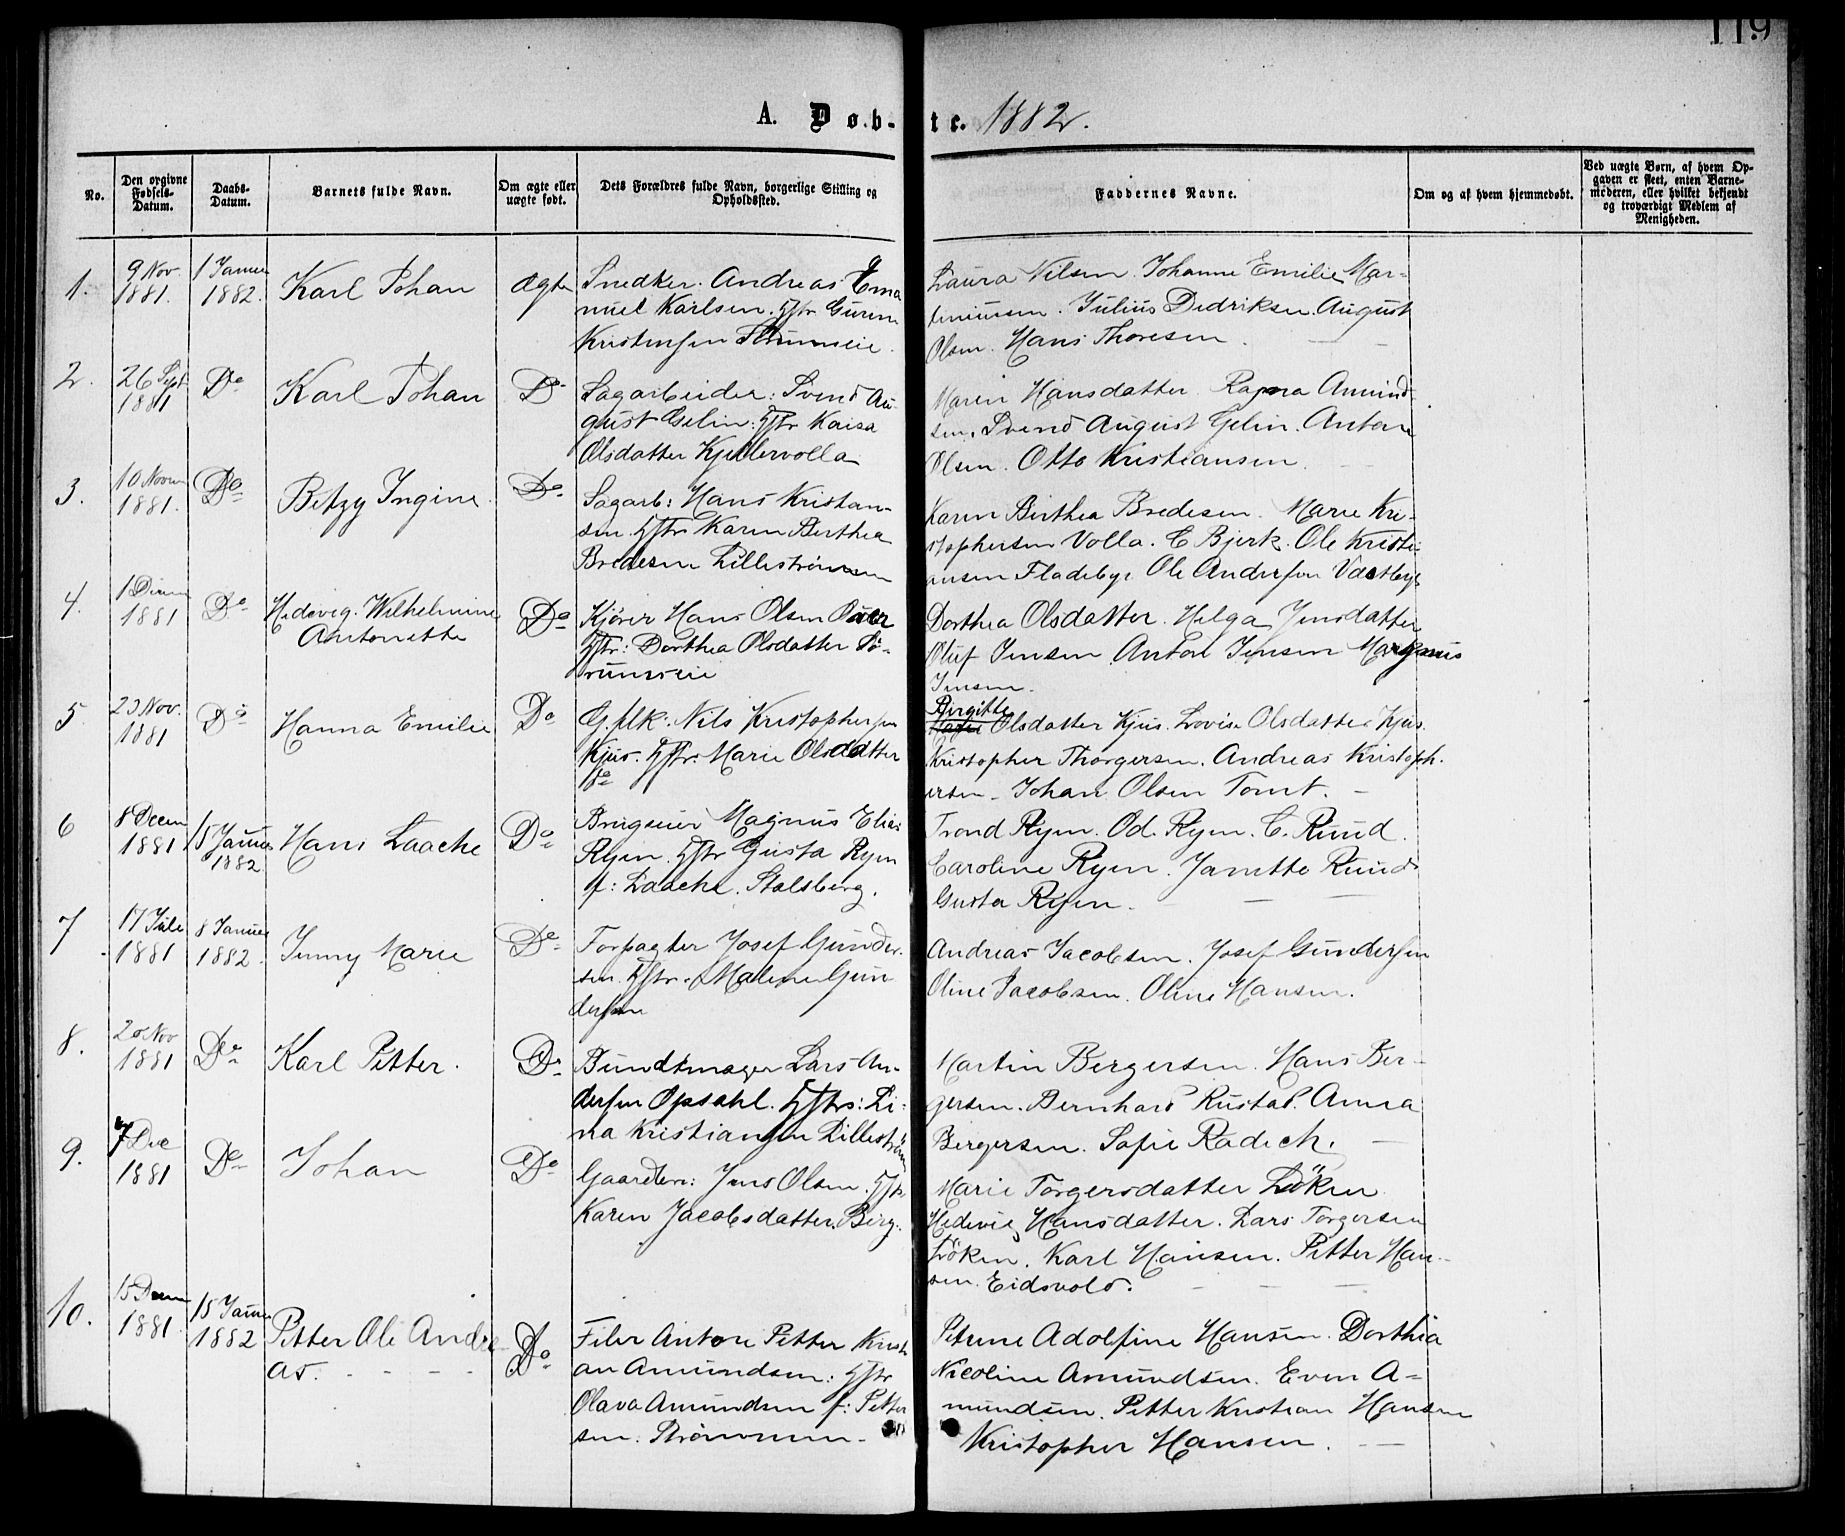 119
A. Døb-te. 1882.
No.
Den opgivne Fødsels-Datum.
Daabs-Datum.
Barnets fulde Navn.
Om ægte eller uægte født.
Dets Forældres fulde Navn, borgerlige Stilling og Opholdssted.
Faddernes Navne.
Om og af hvem hjemmedøbt.
Ved uægte Børn, af hvem Opgaven er skeet, enten Barnemoderen, eller hvilket bekjendt og troværdigt Medlem af Menigheden.
1.
9 Nov.
1881.
1 Januar
1882.
Karl Johan
ægte
Snedker. Andreas Ema
nuel Karlsen. Hstr
Kristensen
Laura Nilsen. Johanne Emilie Mar-
. Julius Dedriksen. August
Olsen. Hans Thoresen.
2.
26 Sept.
1881
Do
Karl Johan
Do
Sagarbeider: Svend Au-
gust Gelin: Hstr Kaisa
Olsdatter Kjellervolla
Maren Hansdatter. Ragna Amund-
sen. Svend August Gelin. Anton
Olsen. Otto Kristiansen.
3.
10 Novem
1881.
Do
Betzy Ingine.
Do.
Sagarb: Hans Kristan-
sen. Hstr Karen Berthea
Bredesen Lillestrømmen
Karen Berthea Bredesen. Marie Kri-
stophersen Volla. C Bjerk. Ole Kristi-
ansen Fladeby. Ole Andersen Vestbye
4.
1 Decem
1881
Do
Hedevig. Wilhelmine
Antonette
Do
Kjører Hans Olsen
Hstr: Dorthea Olsdatter Sø-
rumseie
Dorthea Olsdatter. Helga Jensdatter
Oluf Jensen Anton Jensen Magnus
Jensen.
5
23 Nov.
1881
Do
Hanna Emilie
Do
G. flk: Nils Kristophersen
Kjus. Hstr: Marie Olsdatter
Do
Birgitte
Olsdatter Kjus. Lovise Olsdatter Kjus.
Kristopher Thorgersen. Andreas Kristoph-
ersen - Johan Olsen Tomt. -
6
8 Decem
1881
15 Januar
1882
Hans Laache
Do
Brugseier Magnus Elias
Ryen. Hstr Gusta Ryen
f: Laache. Stalsberg.
Trond Ryen. Od. Ryen. C. Ruud.
Caroline Ryen. Janette Ruud
Gusta Ryen.
7
17 Juli
1881
8 Januar
1882.
Jenny Marie
Do
Forpagter Josef Gunder-
sen. Hstr. Malene Gun
dersen
Andreas Jacobsen. Josef Gundersen
Oline Jacobsen. Oline Hansen.
8.
20 Nov
1881
Do
Karl Petter.
Do
Bundtmager Lars An-
dersen Opsahl. Hstrs: Li-
na Kristiansen Lillestrøm
Martin Bergersen. Hans Ber-
gersen. Bernhard Rustad. Anna
Bergersen. Sofie Radich.
9.
7 Dec
1881
Do
Johan
Do
Gaardbr: Jens Olsen. Hstr.
Karen Jacobsdatter. Berg.
Marie Torgersdatter Løken
Hedevig Hansdatter. Lars Torgersen
Løken. Karl Hansen. Petter Han-
sen. Eidsvold.
10.
15 Decem
1881.
15 Januar
1882
Petter Ole Andre-
as.
Do
Filer Antore Petter Kristi
an Amundsen: Hstr
Olava Amundsen f: Petter
sen. Strømmen.
Petrine Adolfine Hansen. Dorthia
Nicoline Amundsen. Even A-
mundsen. Petter Kristian Hansen
Kristopher Hansen.